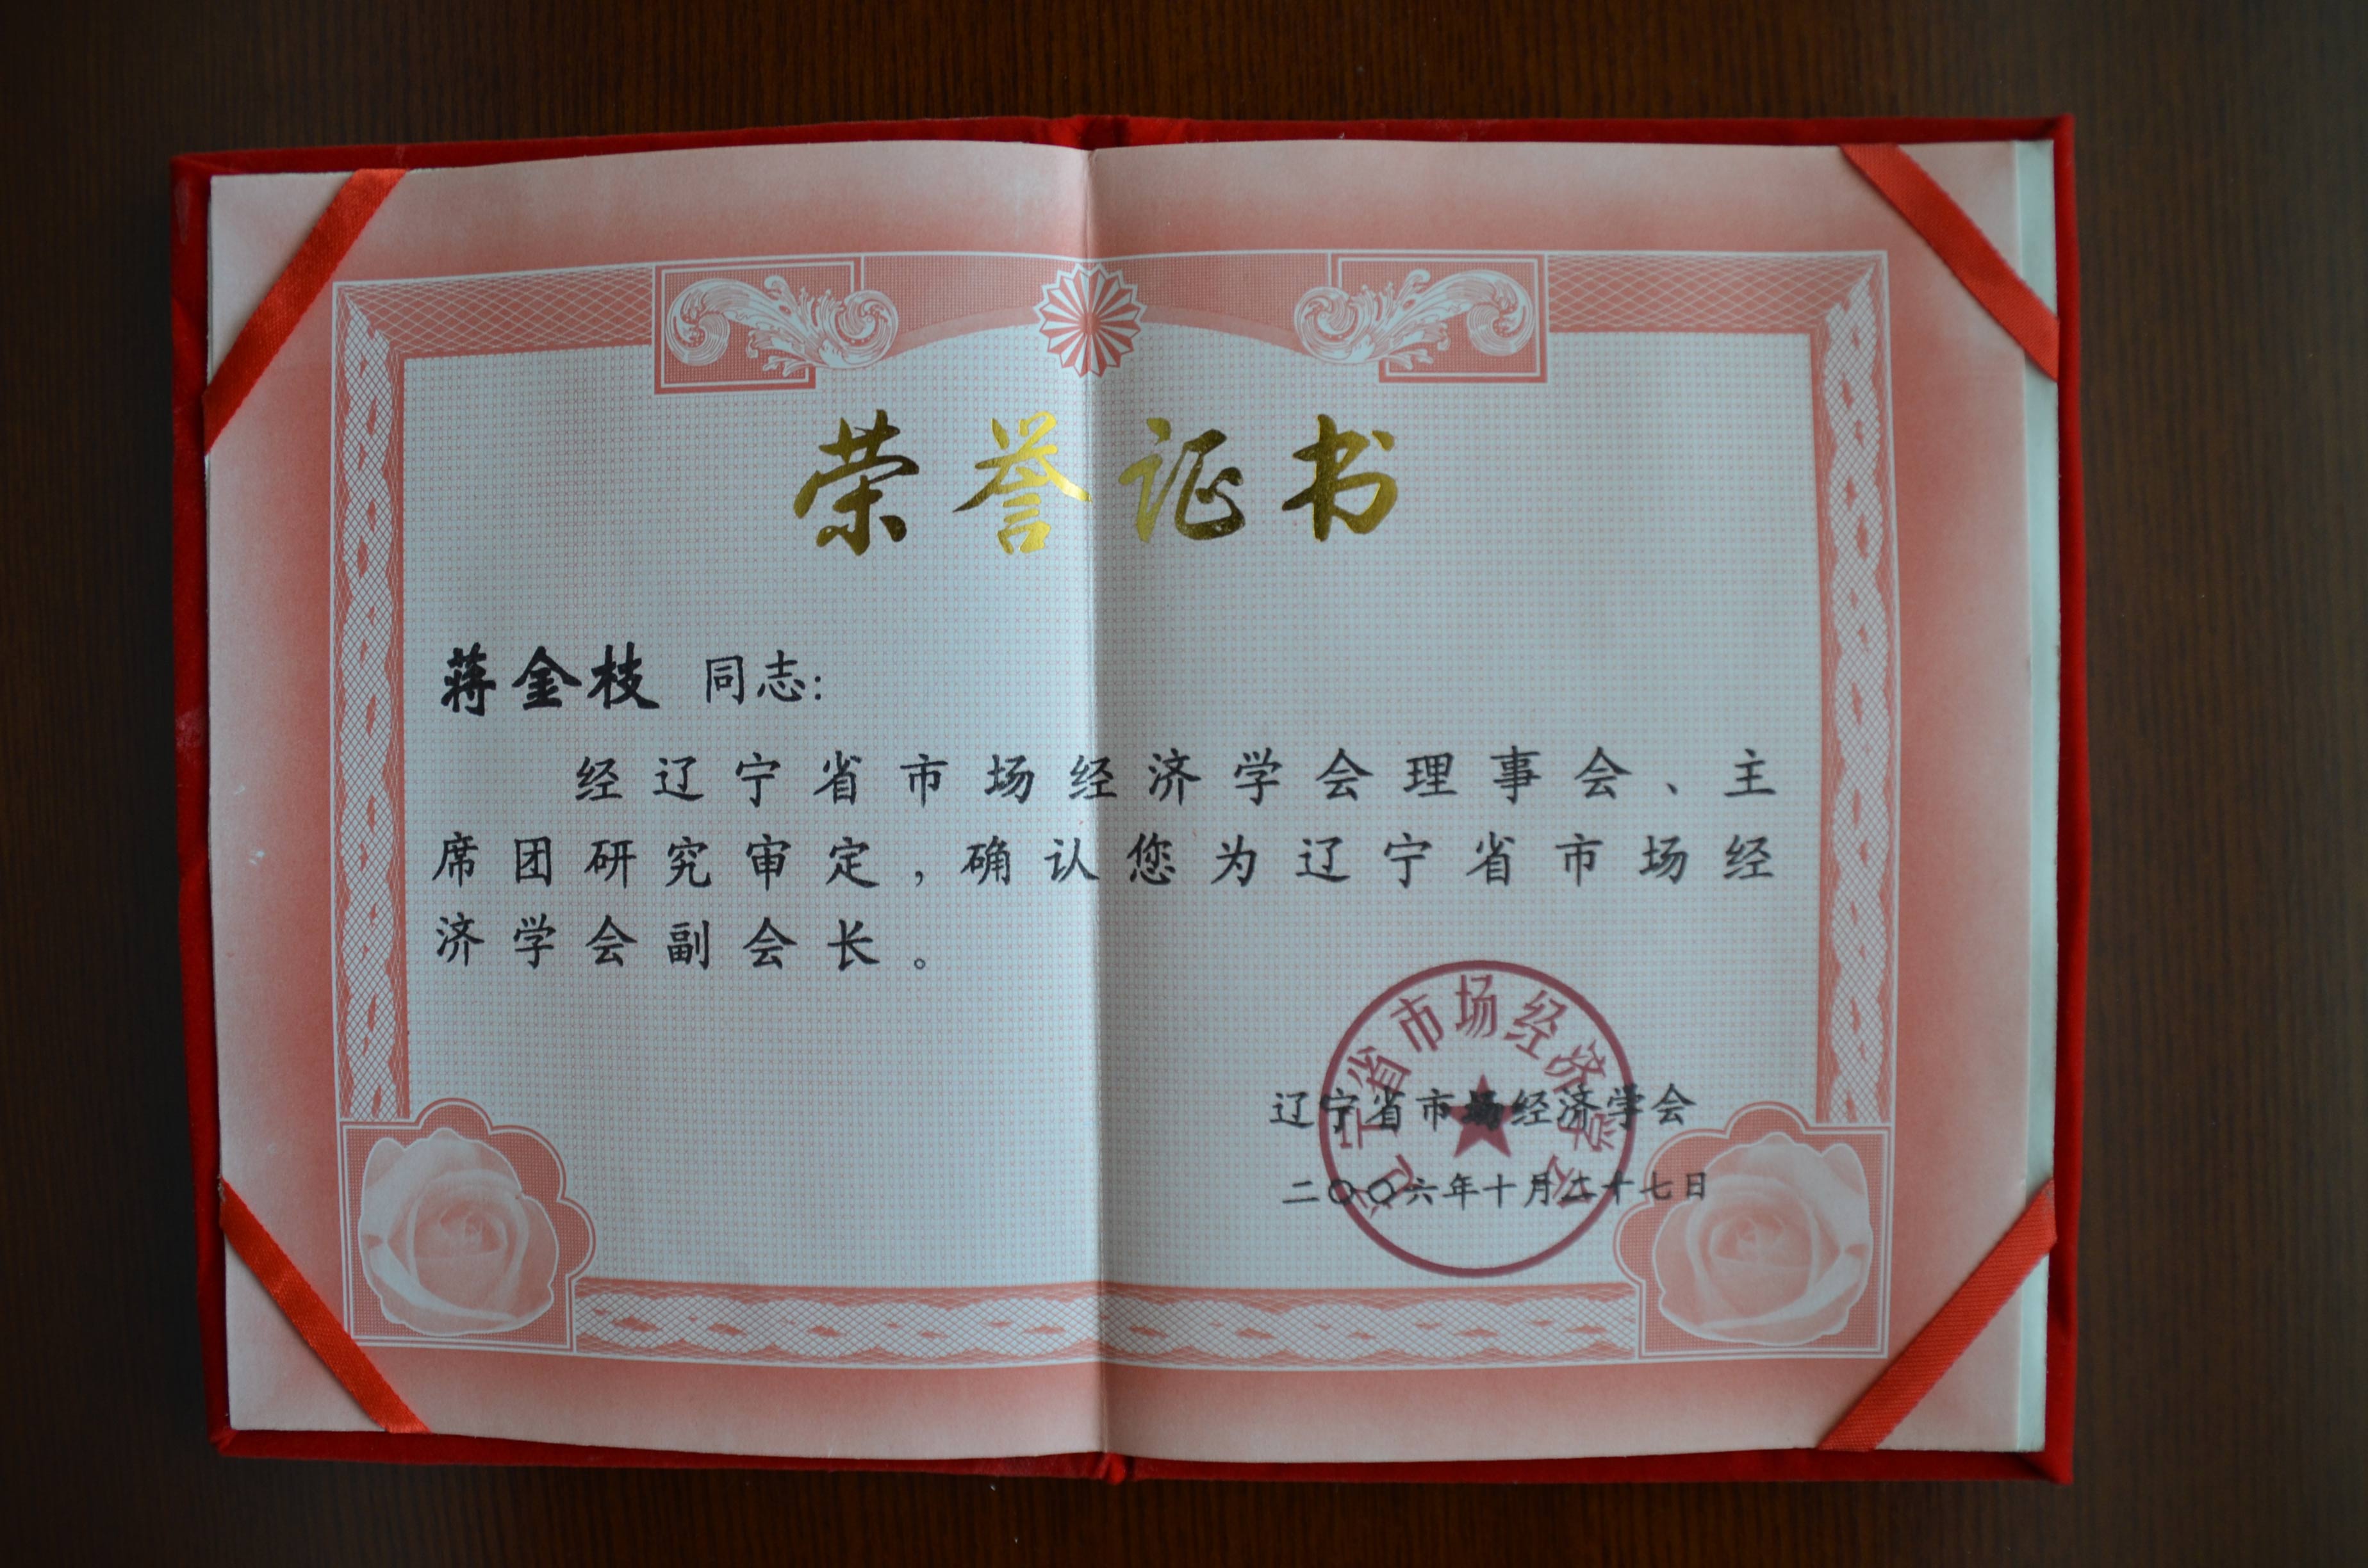 荣誉证书
蒋金枝 同志：
经辽宁省市场经济学会理事会、主
席团研究审定，确认您为辽宁省市场经
济学会副会长。
辽宁省市场经济学会
辽宁省市场经济学会
二〇〇六年十月二十七日